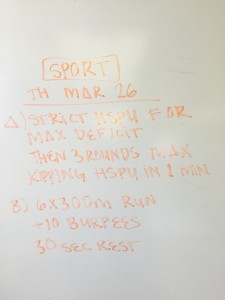 SPORT
TH MAR 26
A) STRICT HSPU FOR
MAX DEFICIT
THEN 3 ROUNDS MAX
KIPPING HSPU IN 1 MIN
B) 6X300M RUN
+10 BURPEES
30 SEC REST